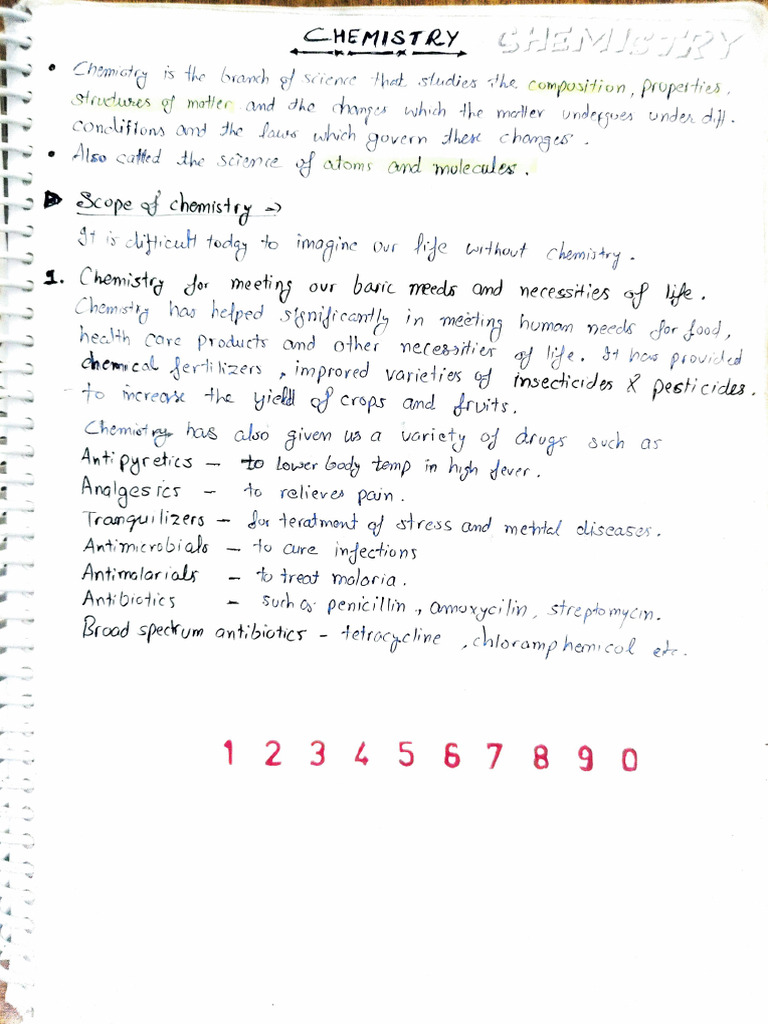 CHEMISTRY CHEMISTRY
• Chemistry is the branch of science that studies the composition, properties,
structures of matter and the changes which the matter undergoes under diff.
conditions and the laws which govern these changes.
• Also called the science of atoms and molecules.
Scope of chemistry →
It is difficult today to imagine our life without chemistry.
1. Chemistry for meeting our basic needs and necessities of life.
Chemistry has helped significantly in meeting human needs for food,
health care products and other necessities of life. It has provided
chemical fertilizers, improved varieties of insecticides & pesticides.
to increase the yield of crops and fruits.
Chemistry has also given us a variety of drugs such as
Antipyretics – to lower body temp in high fever.
Analgesics – to relieves pain.
Tranquilizers – for teratment of stress and mental diseases.
Antimicrobials – to cure infections
Antimalarials – to treat malaria.
Antibiotics – such as penicillin, amoxycilin, streptomycin.
Broad spectrum antibiotics – tetracycline, chloramphemicol etc.
1 2 3 4 5 6 7 8 9 0